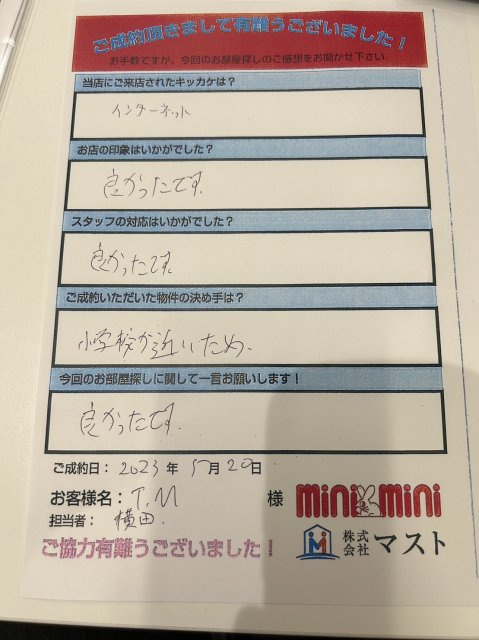 ご成約頂きまして有難うございました！
お手数ですが、今回のお部屋探しのご感想をお聞かせ下さい。
当店にご来店されたキッカケは？
インターネット
お店の印象はいかがでした？
良かったです。
スタッフの対応はいかがでした？
良かったです。
ご成約いただいた物件の決め手は？
小学校が近いため、
今回のお部屋探しに関して一言お願いします！
良かったです。
ご成約日： 2023 年 5月 20日
お客様名： T.M 様
mini mini
担当者： 横田
株式会社 マスト
ご協力有難うございました！